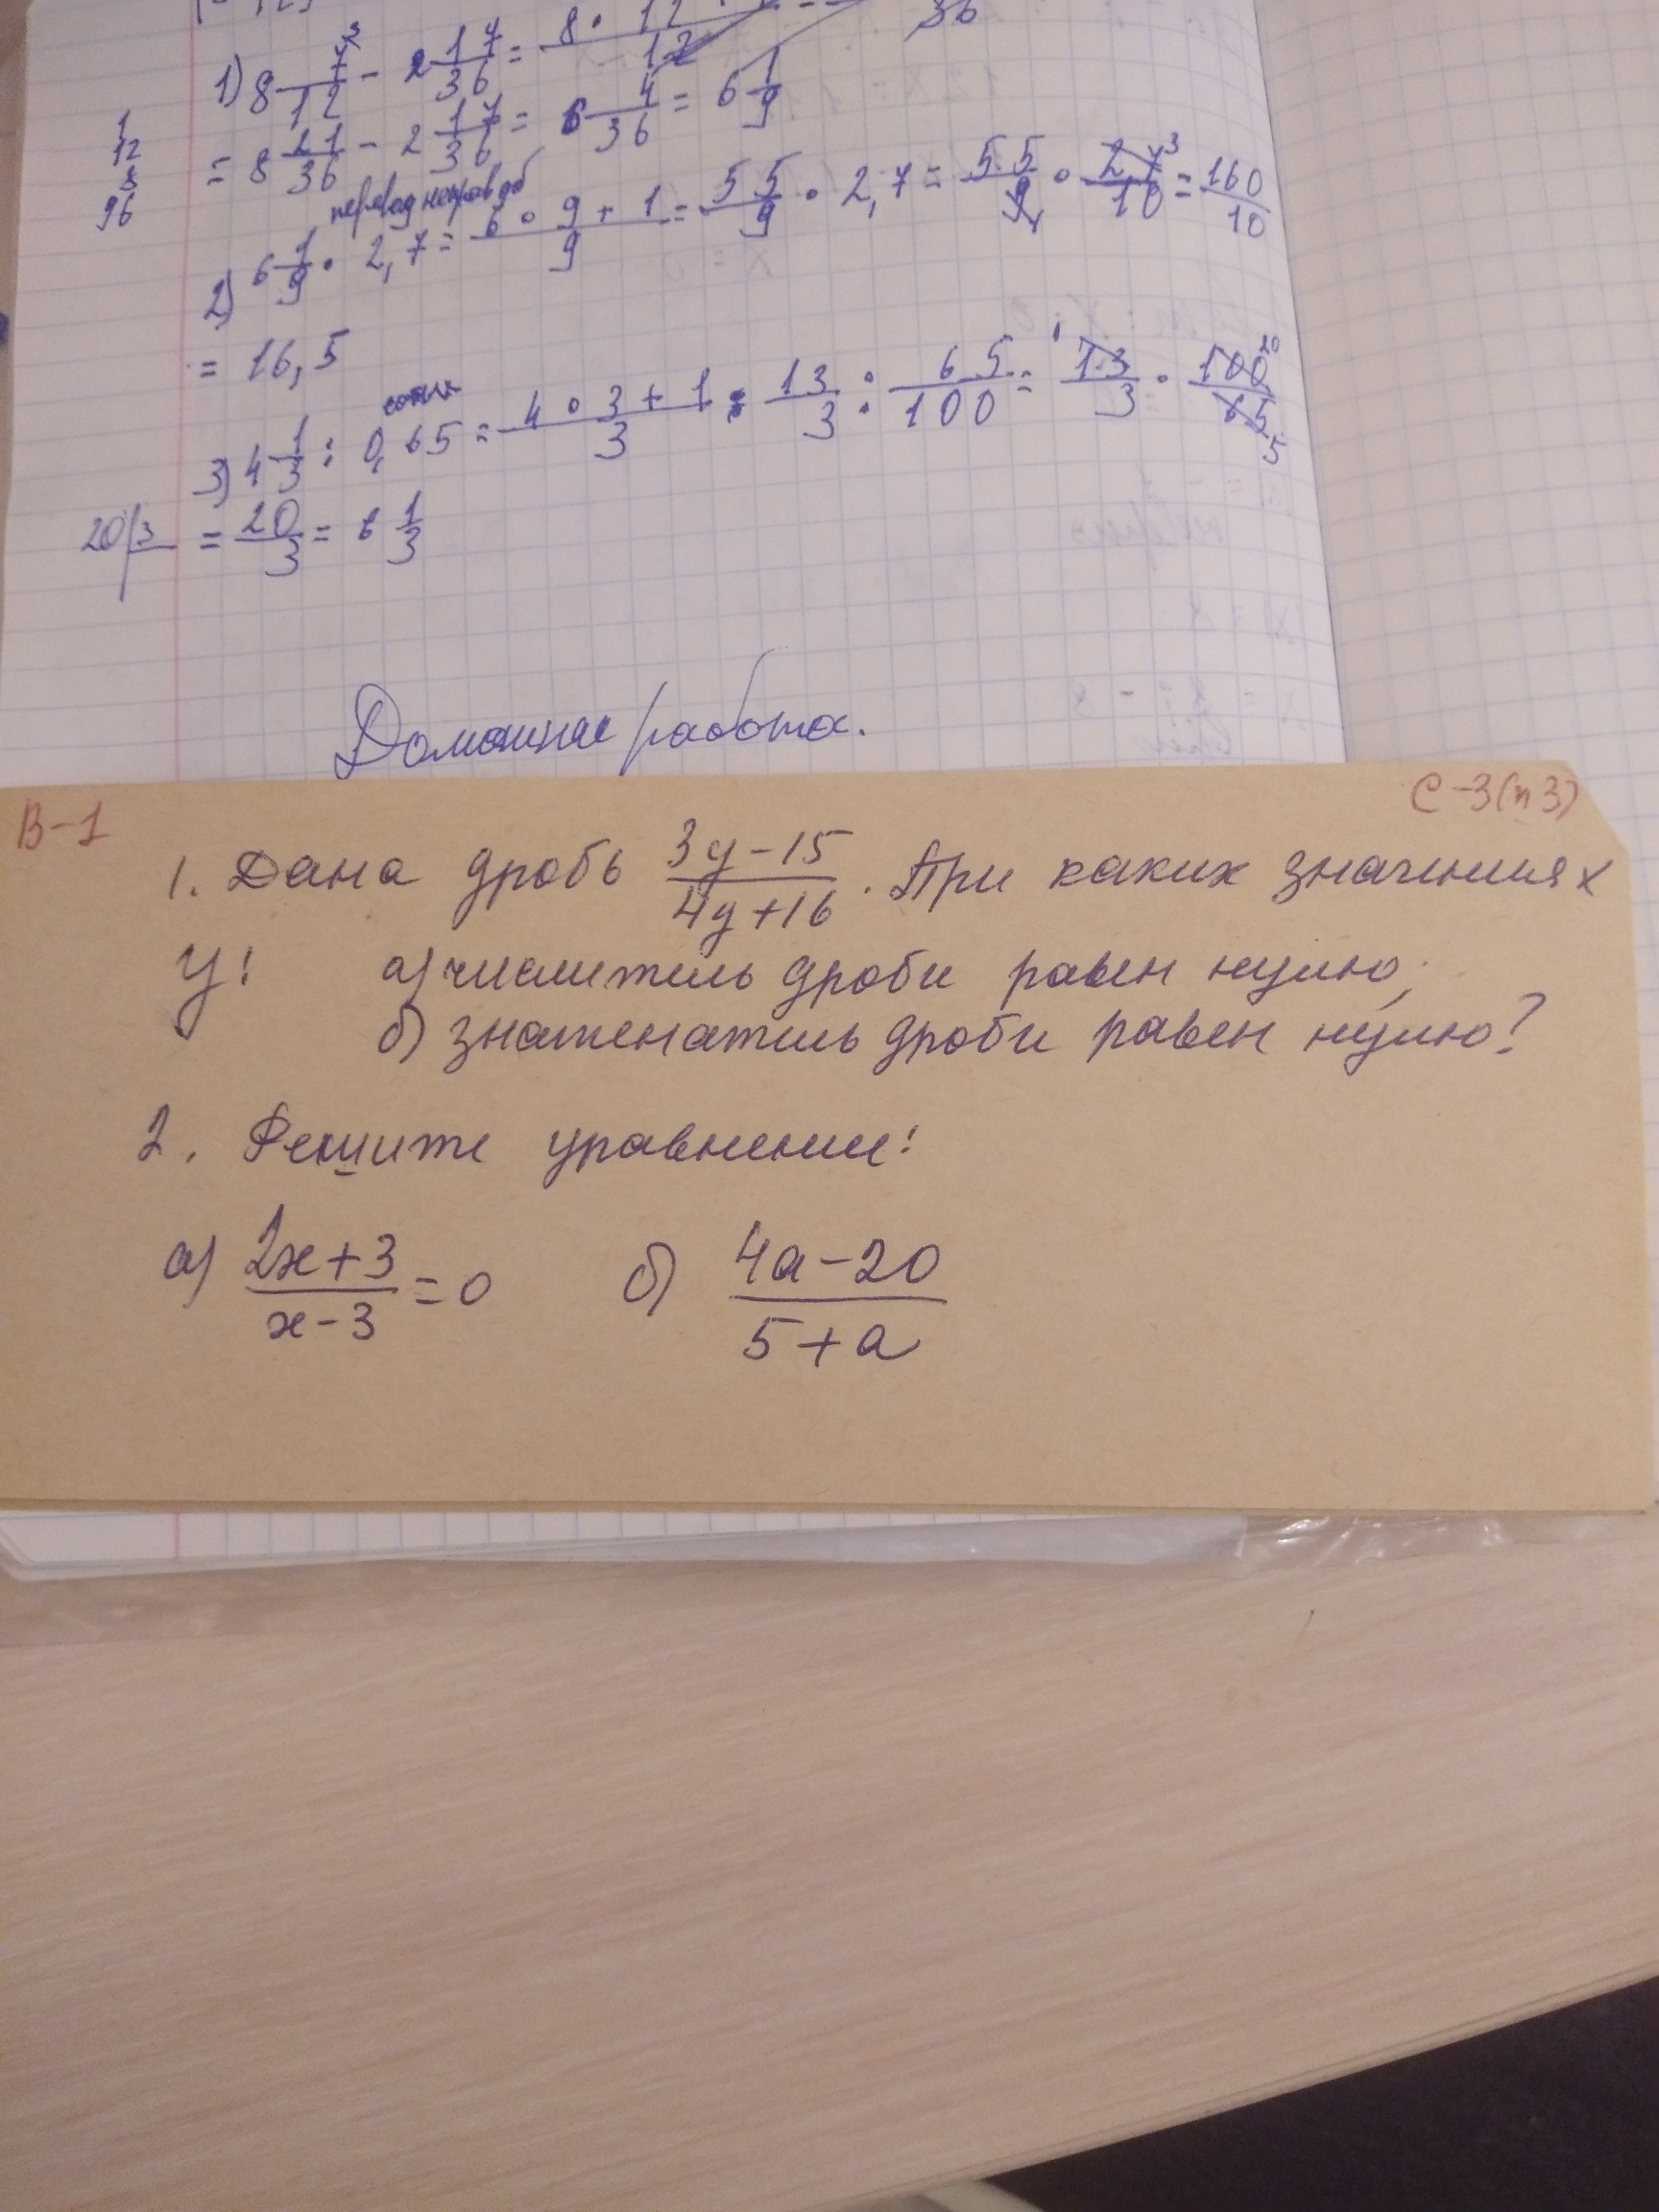 36
1) 8 7/12 ³ - 2 17/36 = 8 · 12 / 12
= 8 21/36 - 2 17/36 = 6 4/36 = 6 1/9
1
12
8
96
2) 6 1/9 · 2,7 = (6 · 9 + 1)/9 = 55/9 · 2,7 = 55/9 · 27/10 ³ = 160/10
= 16,5
3) 4 1/3 : 0,65 = (4 · 3 + 1)/3 : 13/3 : 65/100 = ¹ 13/3 · 100/65 20 5
20 | 3
= 20/3 = 6 1/3
Домашняя работа.
В-1
С-3(п3)
1. Дана дробь (3y-15)/(4y+16). При каких значениях
y: а) числитель дроби равен нулю;
б) знаменатель дроби равен нулю?
2. Решите уравнение:
а) (2x+3)/(x-3) = 0 б) (4a-20)/(5+a)